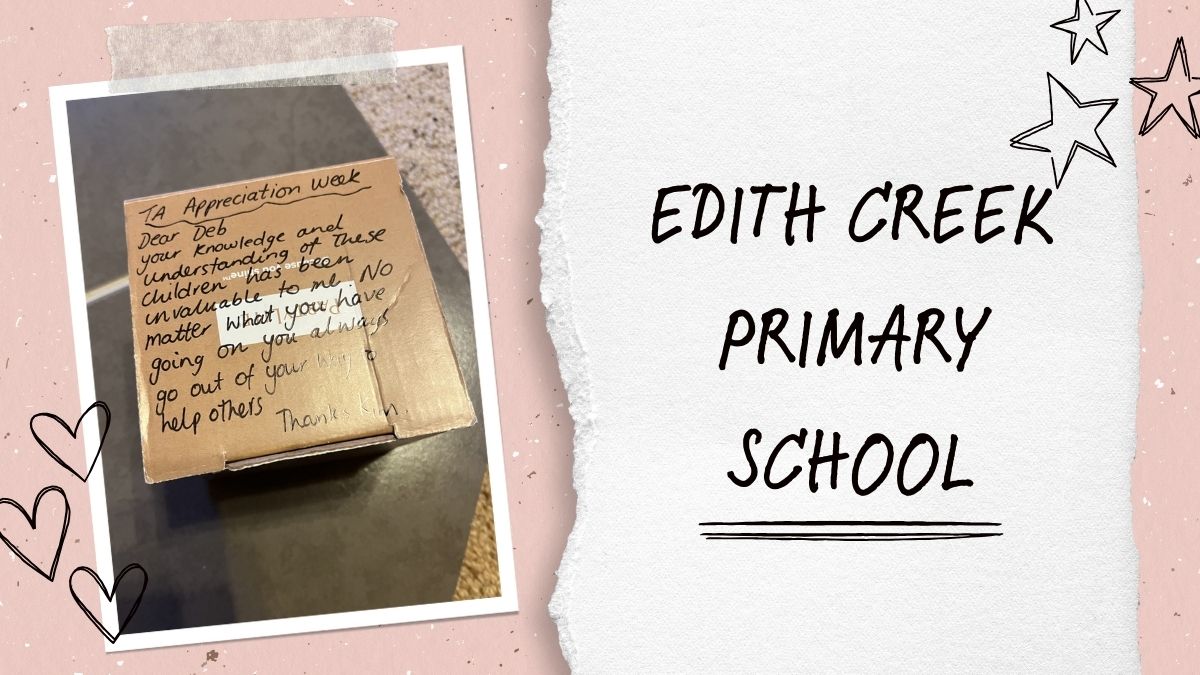 TA Appreciation Week
Dear Deb
your knowledge and
understanding of these
children has been
invaluable to me. No
matter what you have
going on you always
go out of your way to
help others
Thanks Kim.
EDITH CREEK
PRIMARY
SCHOOL